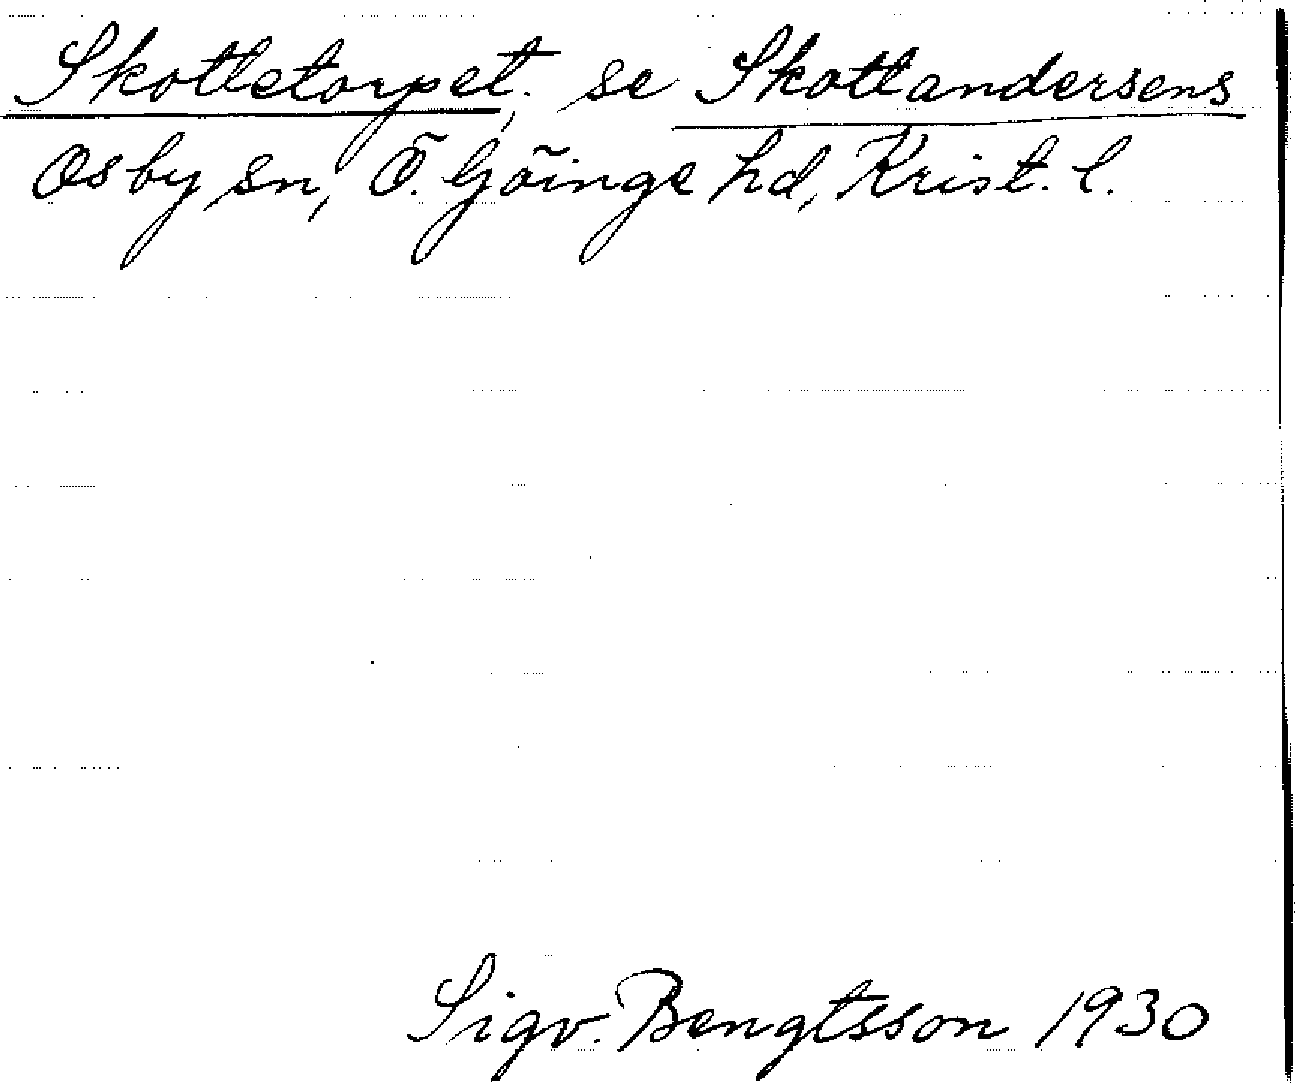 Skottetorpet, se Skottandersens
Osby sn, Ö. Göinge hd, Krist. l.
Sigv. Bengtsson 1930